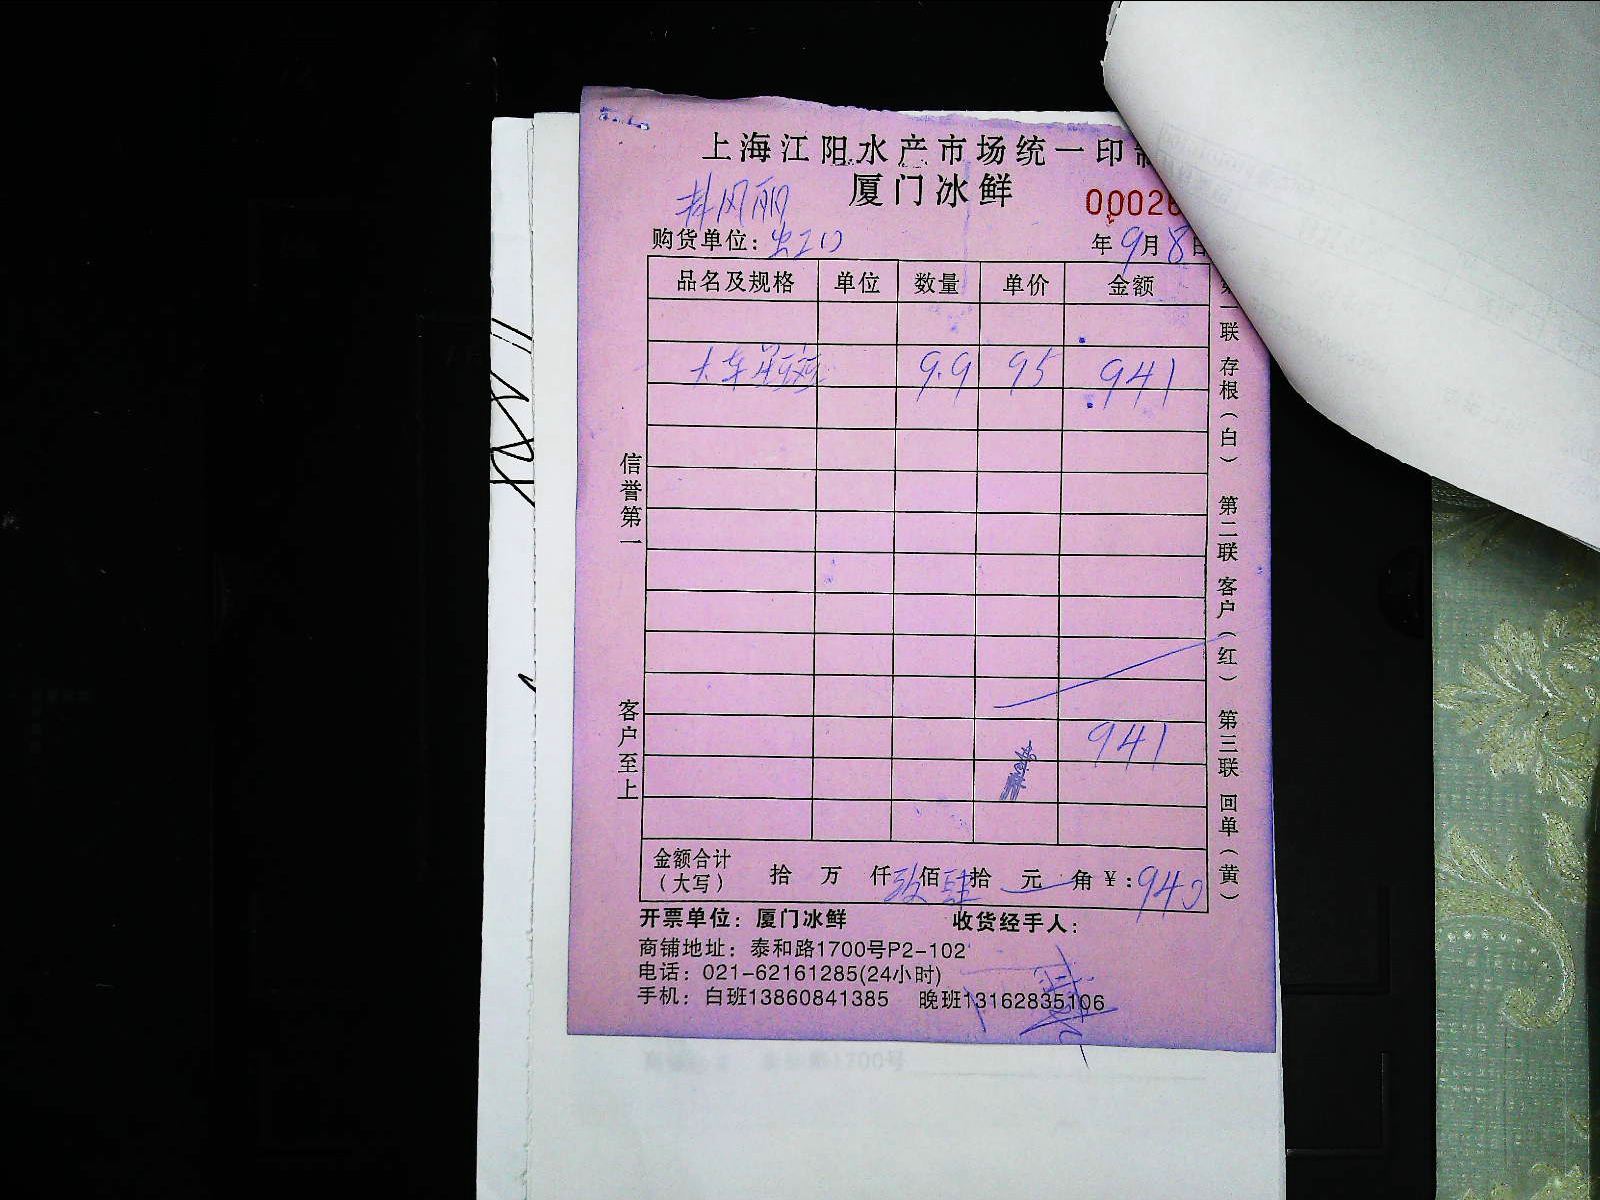 上海江阳水产市场统一印制
厦门冰鲜
00026
购货单位：
年9月8日
品名及规格 单位 数量 单价 金额
9.9 95 941
941
金额合计（大写） 拾 万 仟玖佰肆拾 元 角 ¥：940
开票单位：厦门冰鲜 收货经手人：
商铺地址：泰和路1700号P2-102
电话：021-62161285(24小时)
手机：白班13860841385 晚班13162835106
信誉第一 客户至上
第一联 存根（白） 第二联 客户（红） 第三联 回单（黄）